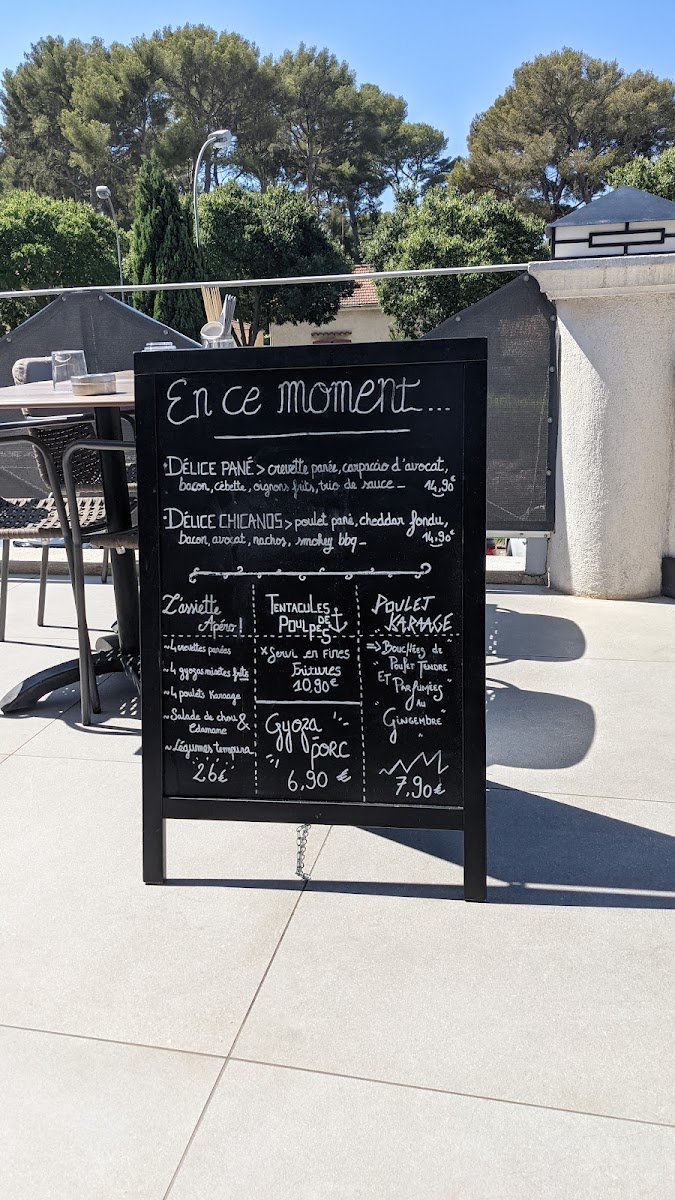 En ce moment...
• DÉLICE PANÉ > crevette panée, carpaccio d'avocat,
bacon, cébette, oignons frits, trio de sauce - 14,90€
• DÉLICE CHICANOS > poulet pané, cheddar fondu, 14,90€
bacon, avocat, nachos, smokey bbq -
L'assiette
Apéro !
~ 4 crevettes panées
~ 4 gyozas mixtes frits
~ 4 poulets Karaage
~ Salade de chou &
Edamame
~ Légumes tempura
26€
TENTACULES
DE
POULPES
x Servi en fines
Fritures
10,90€
Gyoza
PORC
6,90 €
POULET
KARAAGE
=> "Bouchées de
Poulet Tendre
ET Parfumées
au
Gingembre"
7,90€